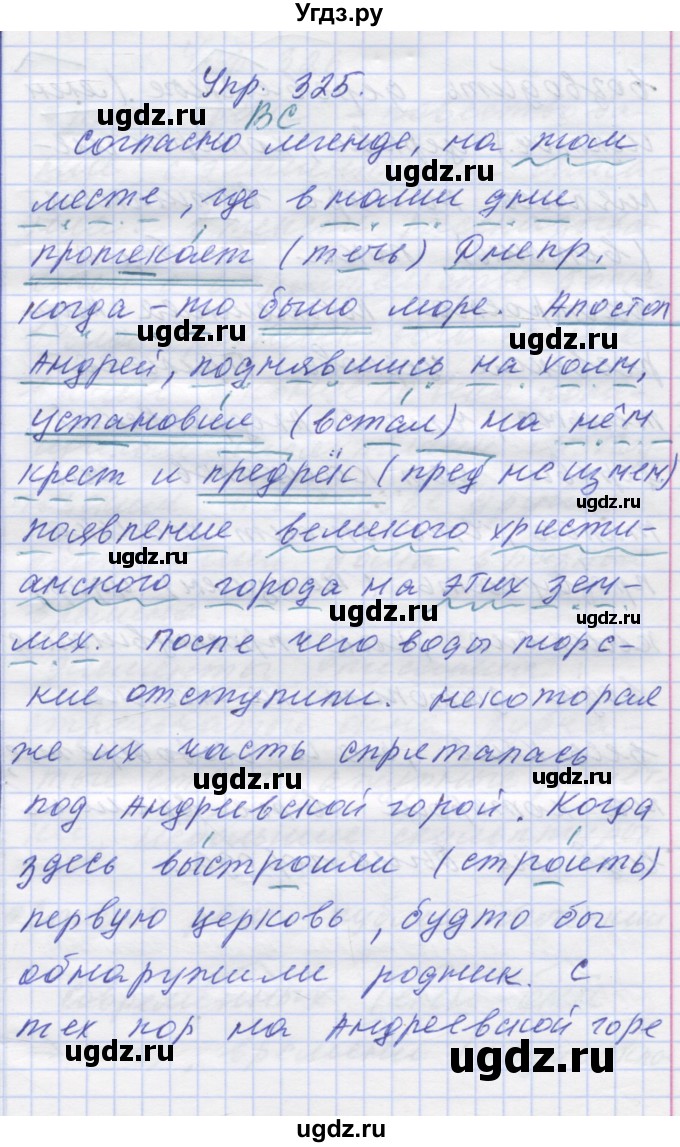 Угдз.ру
Упр. 325.
ugdz.ru
ВС
Согласно легенде, на том
ugdz.ru
месте, где в наши дни
протекает (течь) Днепр,
ugdz.ru
когда-то было море. Апостол
ugdz.ru
Андрей, поднявшись на холм,
установил (встал) на нём
ugdz.ru
крест и предрёк (пред неизмен)
ugdz.ru
появление великого христи-
ugdz.ru
анского города на этих зем-
ugdz.ru
лях. После чего воды морс-
кие отступили. Некоторая
же их часть спряталась
ugdz.ru
ugdz.ru
под Андреевской горой. Когда
здесь выстроили (строить)
ugdz.ru
ugdz.ru
первую церковь, будто бы
обнаружили родник. С
тех пор на Андреевской горе
ugdz.ru
ugdz.ru
ugdz.ru